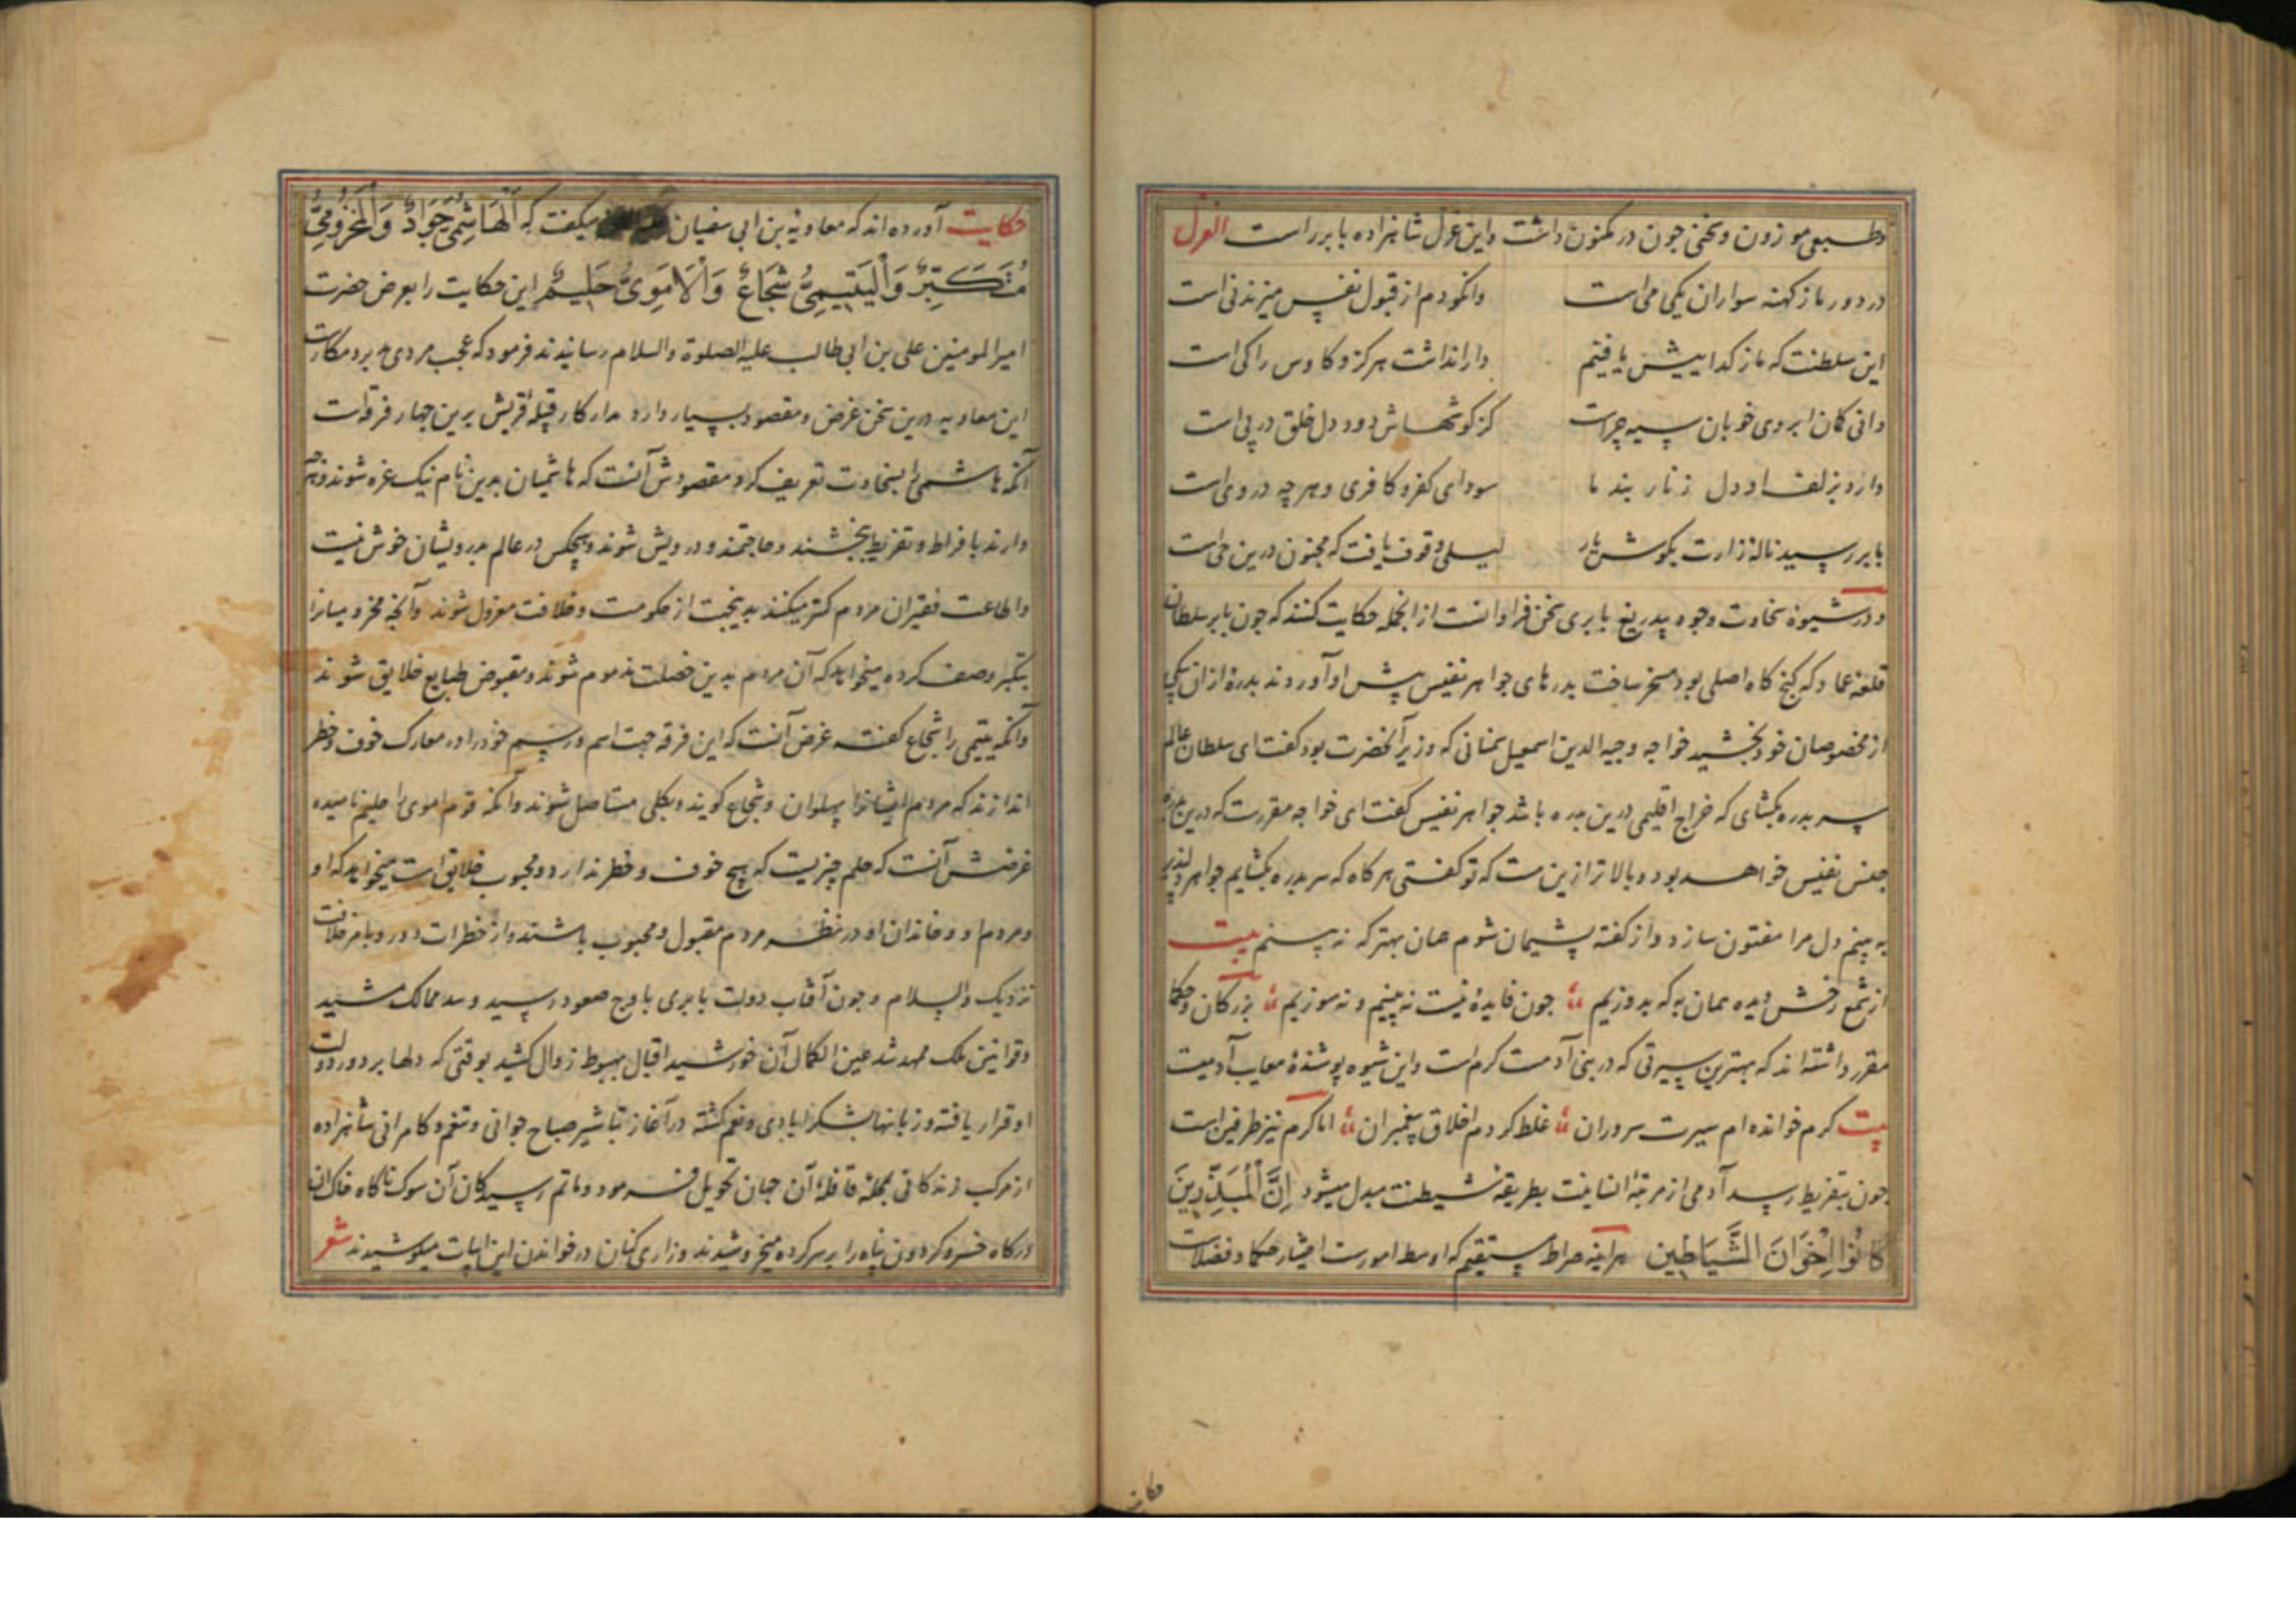 وطبعی موزون و سخنی چون در مکنون داشت و این غزل شاهزاده بابر راست الغزل
در دور ما ز کهنه سواران یکی می است
وانکو دم از قبول نفس میزند نی است
این سلطنت که ما ز کداییش یافتیم
دارا نداشت هرکز و کاوس را کی است
دانی کمان ابروی خوبان سیه چراست
کز کوشهاش دود دل خلق در پی است
دارد بزلف او دل زنار بند ما
سودای کفر و کافری و هرچه در وی است
بابر رسید ناله زارت بکوش یار
لیلی وقوف یافت که مجنون درین حی است
و در شیوه سخاوت و جود بیدریغ بابری سخن فراوانست از انجمله حکایت کنند که چون بابر سلطان
قلعه عماد که کنج کاه اصلی بود مسخر ساخت بدرهای جواهر نفیس پیش او آوردند بدره ازان بیکی
از مخصوصان خود بخشید خواجه وجیه الدین اسمعیل سمنانی که وزیر آنحضرت بود کفت ای سلطان عالم
سر بدره بکشای که خراج اقلیمی درین بدره باشد جواهر نفیس کفت ای خواجه مقررست که درین بدره
جنس نفیس خواهد بود و بالاتر ازین نیست که تو کفتی هرکاه که سر بدره بکشایم جواهر دلپذیر
به بینم دل مرا مفتون سازد و از کفته پشیمان شوم همان بهتر که نه بینم بیت
از شمع رخش دیده همان به که بدوزیم چون فایده نیست نه بینیم و نه سوزیم بزرکان و حکما
مقرر داشته اند که بهترین سیرتی که در بنی آدمست کرم است و این شیوه پوشنده معایب آدمیت
بیت کرم خوانده ام سیرت سروران غلط کردم اخلاق پیغمبران اما کرم نیز طرفین است
چون بتفریط رسد آدمی از مرتبه انسانیت بطریقه شیطنت مبدل میشود اِنَّ الْمُبَذِّرِینَ
کَانُوا اِخْوَانَ الشَّیَاطِین هراینه صراط مستقیم که اوسط امورست اختیار حکما و فضلاست
حکایت
حکایت آورده اند که معاویه بن ابی سفیان میکفت که اَلْهَاشِمِیُّ جَوَادٌ وَالْمَخْزُومِیُّ
مُتَکَبِّرٌ وَالْیَتِیمِیُّ شُجَاعٌ وَالْاَمَوِیُّ حَلِیمٌ این حکایت را بعرض حضرت
امیرالمومنین علی بن ابی طالب علیه الصلوة والسلام رسانیدند فرمود که عجب مردی مدبر و مکارست
این معاویه درین سخن غرض و مقصود بسیار دارد مدار کار قبیله قریش برین چهار فرقه است
آنکه هاشمی را بسخاوت تعریف کرد مقصودش آنست که هاشمیان بدین نام نیک غره شوند و هرچه
دارند بافراط و تفریط ببخشند و حاجتمند و درویش شوند و هیچکس در عالم بدرویشان خوش نیست
و اطاعت فقیران مردم کمتر میکنند بدینجهت از حکومت و خلافت معزول شوند و آنچه مخزومیانرا
بتکبر وصف کرده میخواهد که آن مردم بدین خصلت مذموم شوند و مقبوض طبایع خلایق شوند
وآنکه یتیمی را شجاع کفته غرض آنست که این فرقه جهت اسم و رسم خود را در معارک خوف و خطر
اندازند که مردم ایشانرا پهلوان و شجاع کویند و بکلی مستاصل شوند وآنکه قوم اموی را حلیم نامیده
غرضش آنست که حلم چیزیست که هیچ خوف و خطر ندارد و محبوب خلایق است میخواهد که او
و مردم او و خاندان او در نظر مردم مقبول و محبوب باشند و از خطرات دور و بامر خلافت
نزدیک والسلام و چون آفتاب دولت بابری باوج صعود رسید و سد ممالک مشید
و قوانین ملک ممهد شد عین الکمال آن خورشید اقبال بهبوط زوال کشید بوقتی که دلها بر دور دولت
او قرار یافته و زبانها بشکر ایادی و نعم کشته در آغاز تباشیر صباح جوانی و تنعم و کامرانی شاهزاده
از مرکب زندکانی بمحله قافله آن جهان تحویل فرمود و ماتم رسیدکان آن سوک ناکاه خاک ان
درکاه خسرو کردون پناه را بر سر کرده میخروشیدند و زاری کنان در خواندن این ابیات میکوشیدند شعر